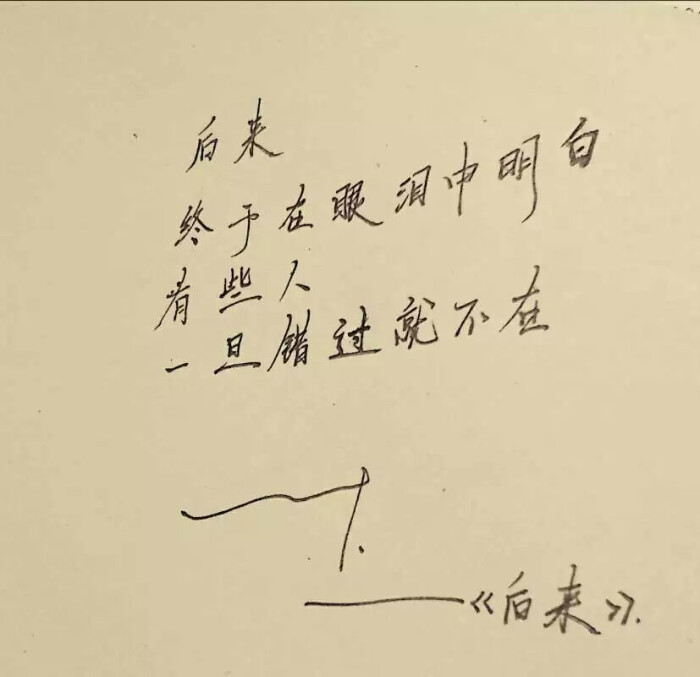 后来
终于在眼泪中明白
有些人
一旦错过就不在
——《后来》.